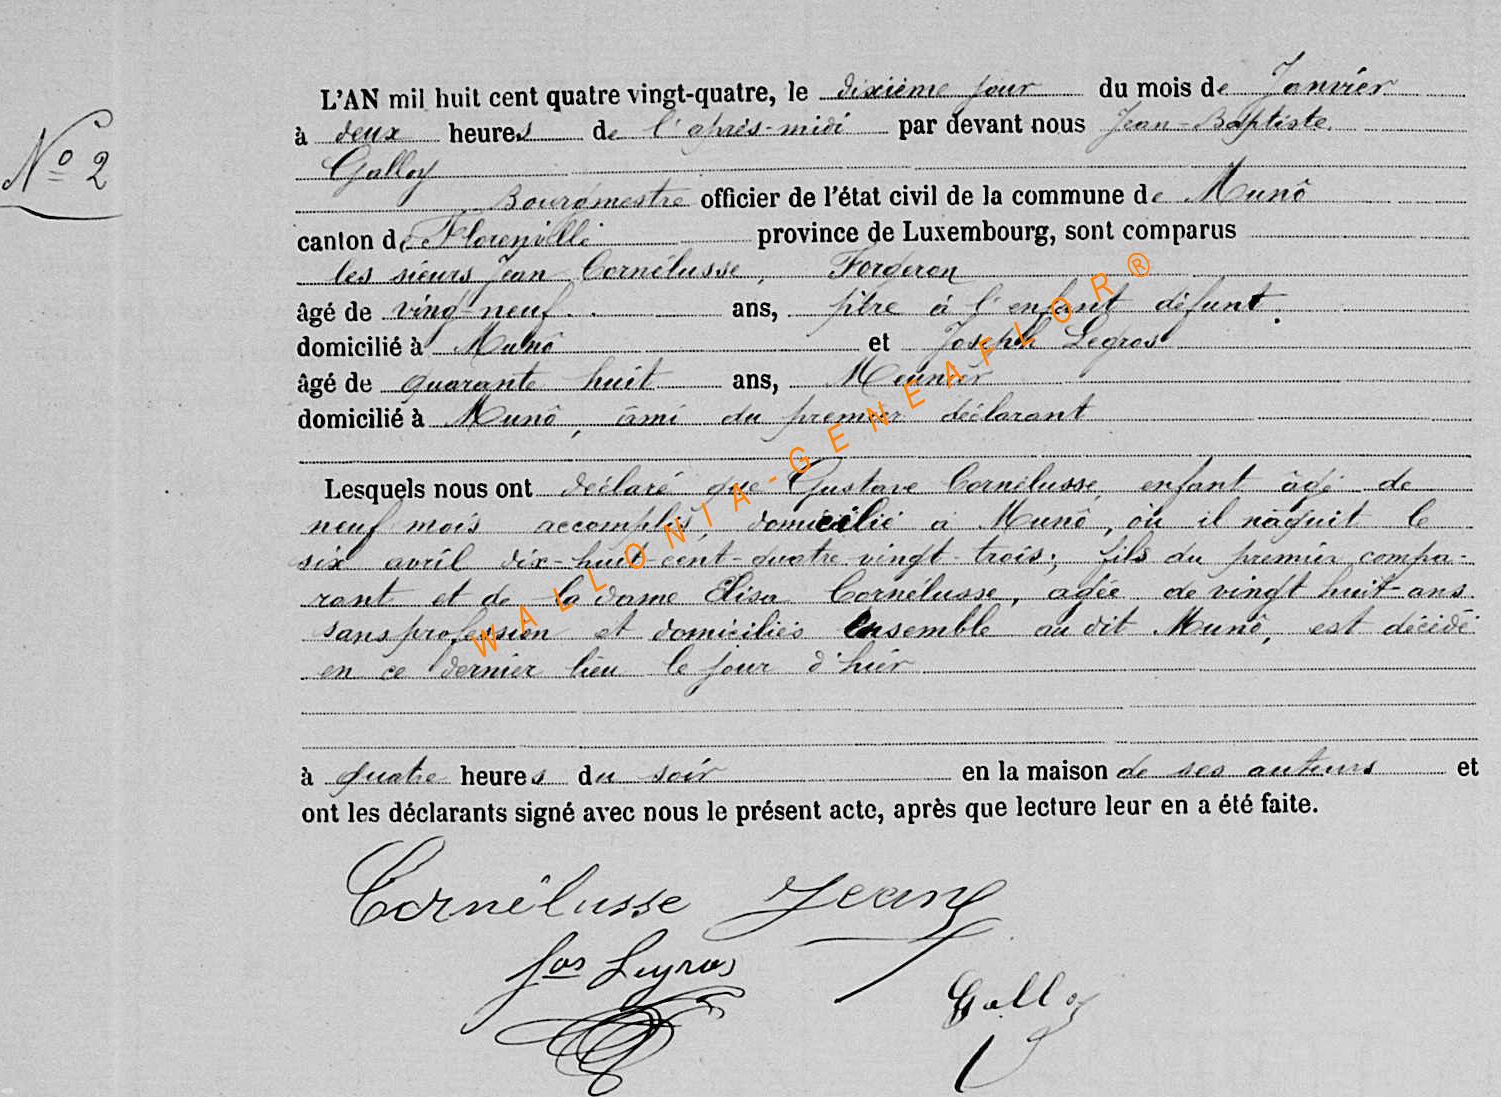 L'AN mil huit cent quatre vingt-quatre, le dixième jour du mois de Janvier
N° 2
à deux heures de l'après-midi par devant nous Jean-Baptiste
Galloy
Bourgmestre officier de l'état civil de la commune de Munô
canton de Florenville province de Luxembourg, sont comparus
les sieurs Jean Cornélusse, Forgeron
âgé de vingt-neuf ans, père à l'enfant défunt.
domicilié à Munô et Joseph Legros
âgé de quarante huit ans, Meunier
domicilié à Munô, ami du premier déclarant
Lesquels nous ont déclaré que Gustave Cornélusse, enfant âgé de
neuf mois accomplis, domicilié à Munô, où il naquit le
six avril dix-huit-cent-quatre-vingt-trois; fils du premier compa-
rant et de la dame Elisa Cornélusse, agée de vingt huit-ans
sans profession et domiciliés ensemble au dit Munô, est décédé
en ce dernier lieu le jour d'hier
à quatre heures du soir en la maison de ses auteurs et
ont les déclarants signé avec nous le présent acte, après que lecture leur en a été faite.
Cornélusse Jean
Jos Legros
Galloy
WALLONIA-GENEAFLOR®